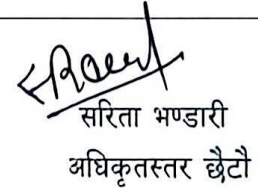 सरिता भण्डारी
अधिकृतस्तर छैटौ